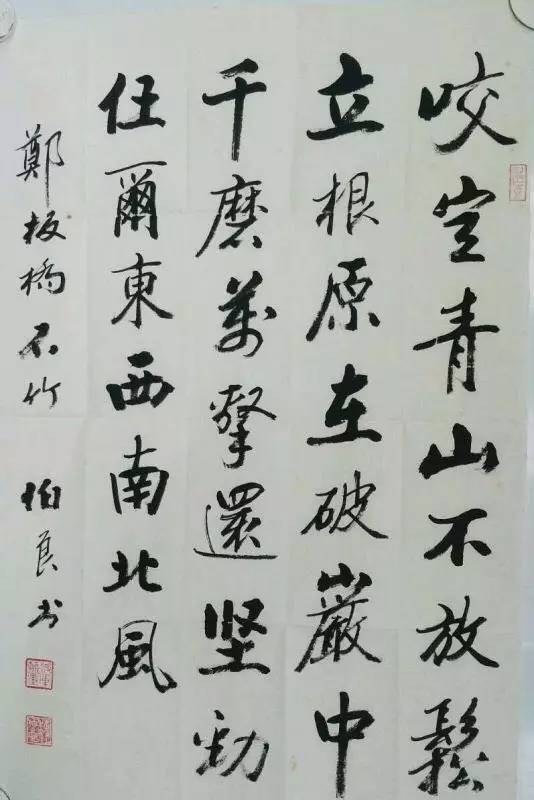 咬定青山不放鬆
立根原在破巖中
千磨萬擊還坚勁
任爾東西南北風
鄭板橋石竹 伯良书